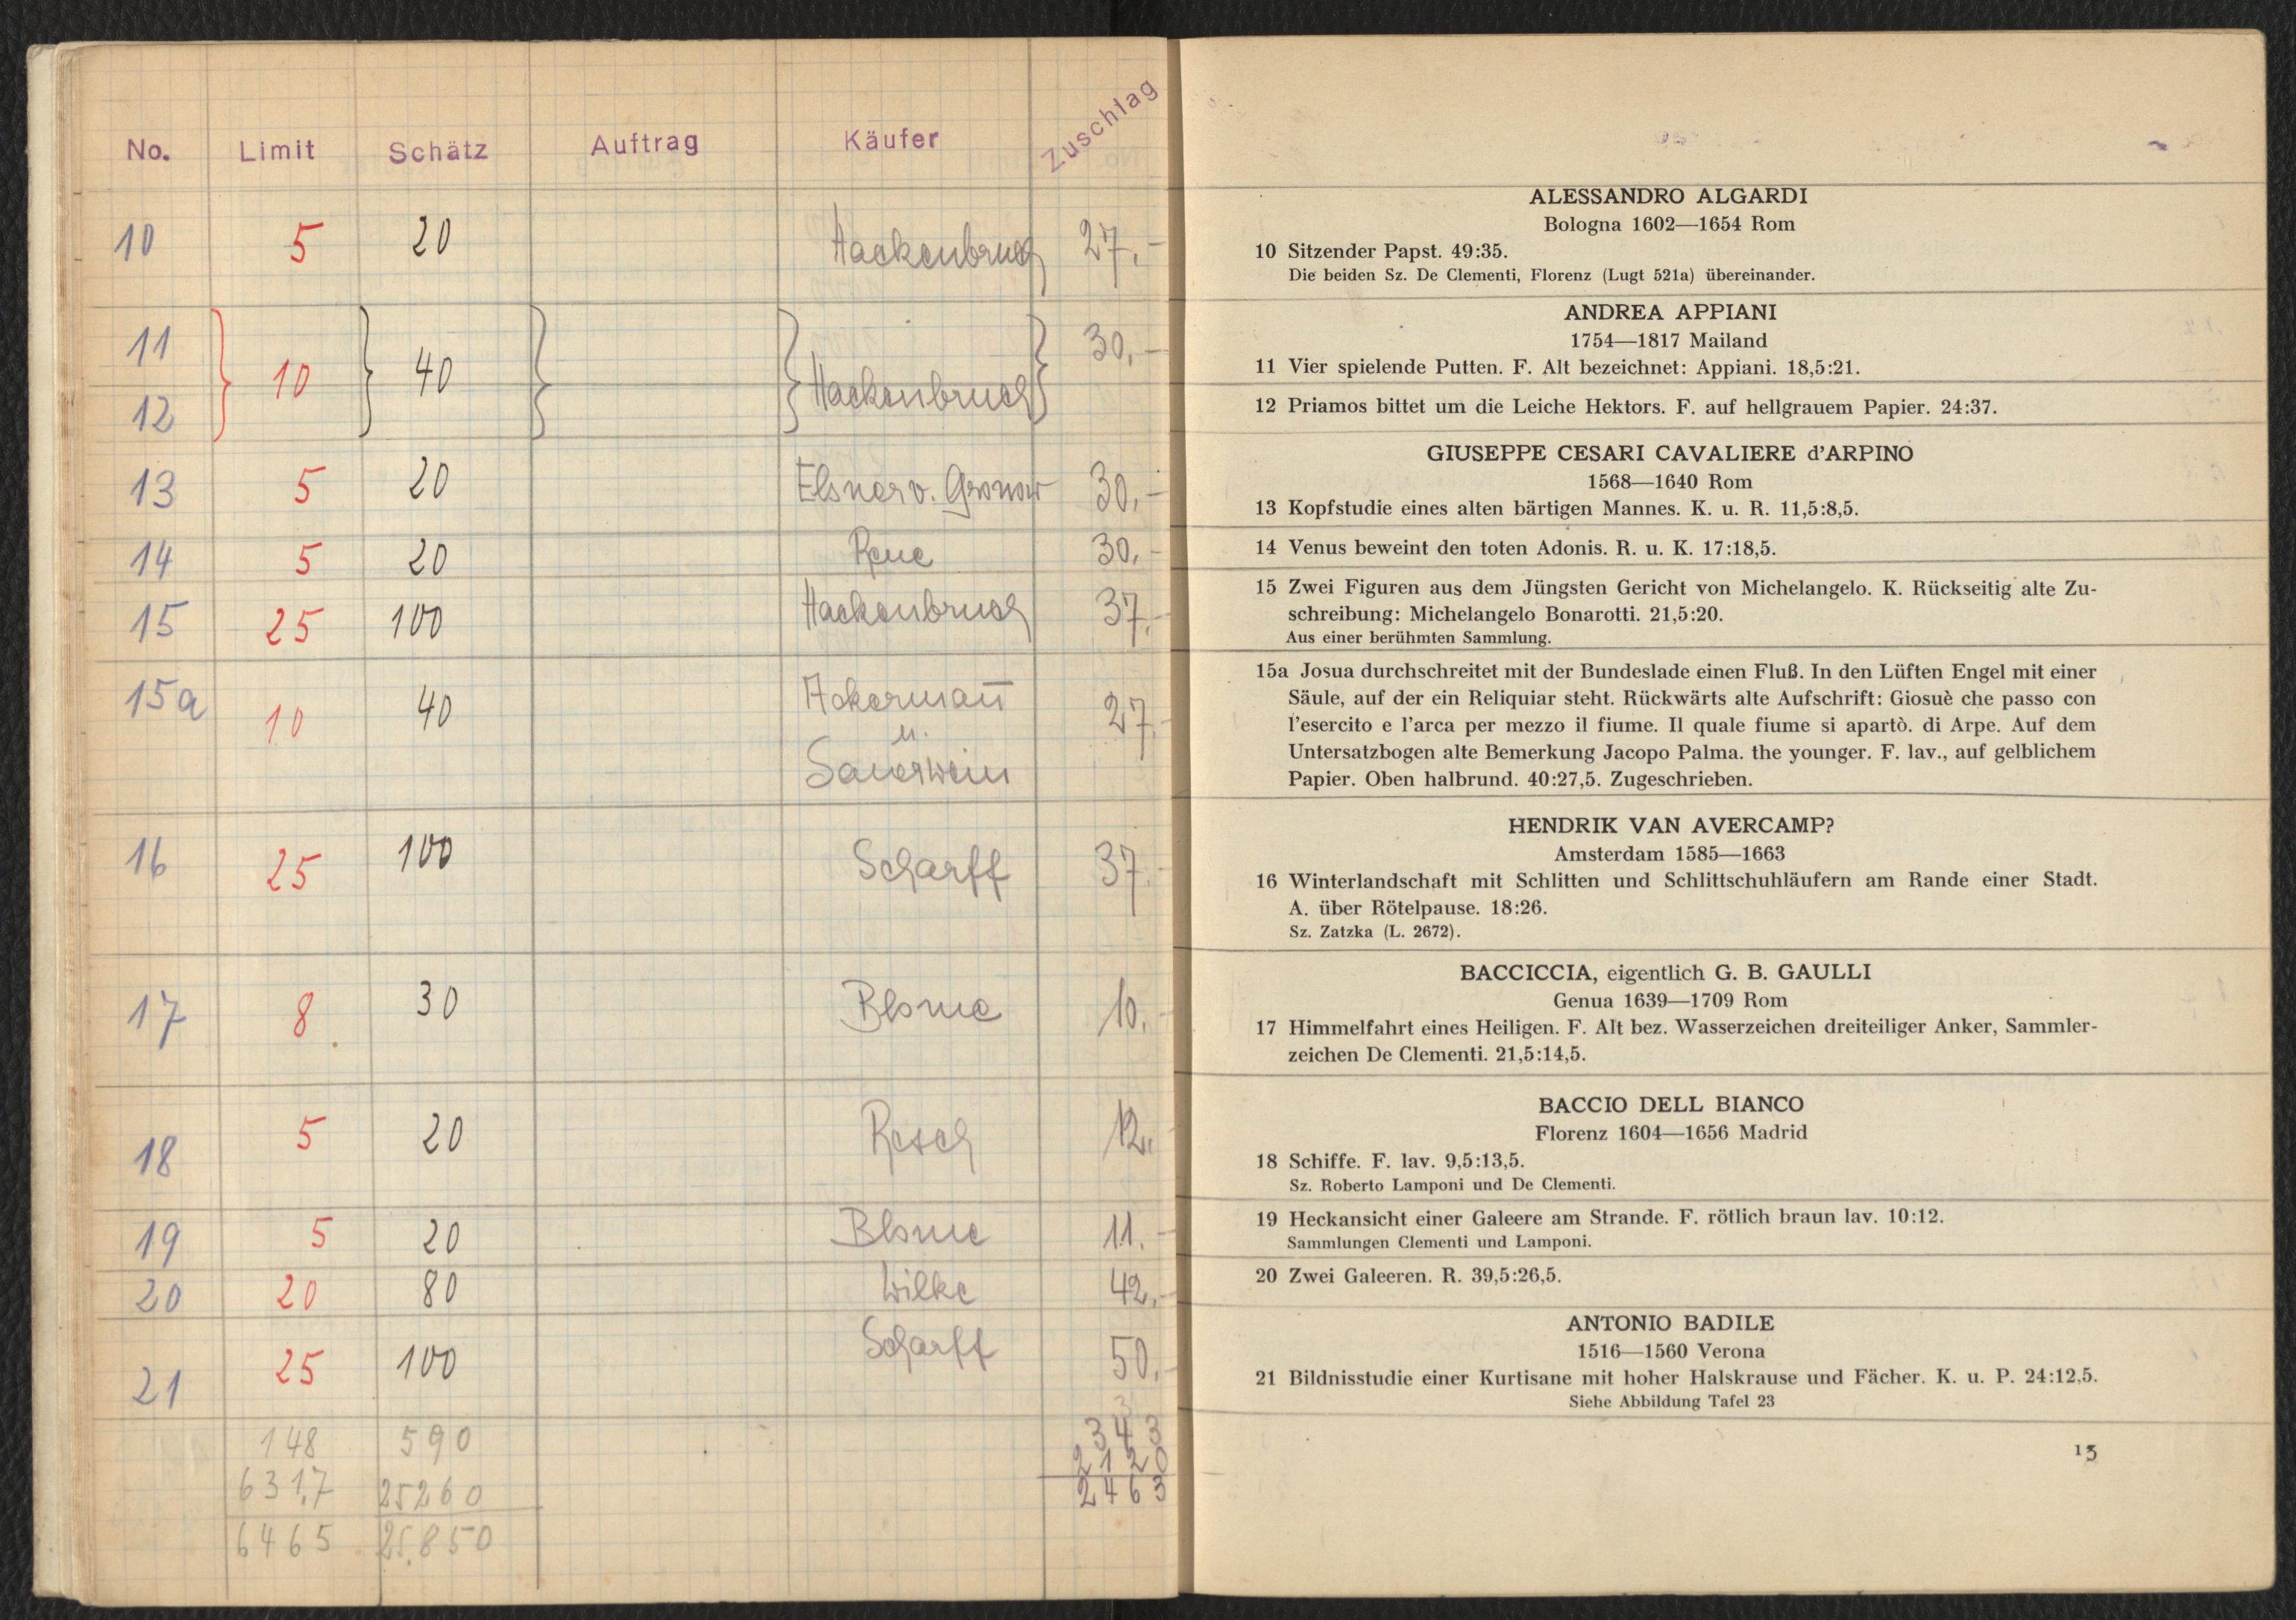 No. Limit Schätz Auftrag Käufer Zuschlag
10 5 20 Hackenbruch 27,-
11 30,-
10 40
12 Hackenbruch
13 5 20 Elsner v. Gronow 30,-
14 5 20 30,-
15 25 100 Hackenbruch 37,-
15a 10 40 Ackermañ 27,-
u.
Sauerwein
16 25 100 Scharff 37,-
17 8 30 Blome 10,-
18 5 20 Resch 12,-
19 5 20 Blome 11,-
20 20 80 Wilke 42,-
21 25 100 Scharff 50,-
3
148 590 343
2120
6317 25260 2463
6465 25.850
ALESSANDRO ALGARDI
Bologna 1602—1654 Rom
10 Sitzender Papst. 49:35.
Die beiden Sz. De Clementi, Florenz (Lugt 521a) übereinander.
ANDREA APPIANI
1754—1817 Mailand
11 Vier spielende Putten. F. Alt bezeichnet: Appiani. 18,5:21.
12 Priamos bittet um die Leiche Hektors. F. auf hellgrauem Papier. 24:37.
GIUSEPPE CESARI CAVALIERE d'ARPINO
1568—1640 Rom
13 Kopfstudie eines alten bärtigen Mannes. K. u. R. 11,5:8,5.
14 Venus beweint den toten Adonis. R. u. K. 17:18,5.
15 Zwei Figuren aus dem Jüngsten Gericht von Michelangelo. K. Rückseitig alte Zu-
schreibung: Michelangelo Bonarotti. 21,5:20.
Aus einer berühmten Sammlung.
15a Josua durchschreitet mit der Bundeslade einen Fluß. In den Lüften Engel mit einer
Säule, auf der ein Reliquiar steht. Rückwärts alte Aufschrift: Giosuè che passo con
l'esercito e l'arca per mezzo il fiume. Il quale fiume si apartò. di Arpe. Auf dem
Untersatzbogen alte Bemerkung Jacopo Palma. the younger. F. lav., auf gelblichem
Papier. Oben halbrund. 40:27,5. Zugeschrieben.
HENDRIK VAN AVERCAMP?
Amsterdam 1585—1663
16 Winterlandschaft mit Schlitten und Schlittschuhläufern am Rande einer Stadt.
A. über Rötelpause. 18:26.
Sz. Zatzka (L. 2672).
BACCICCIA, eigentlich G. B. GAULLI
Genua 1639—1709 Rom
17 Himmelfahrt eines Heiligen. F. Alt bez. Wasserzeichen dreiteiliger Anker, Sammler-
zeichen De Clementi. 21,5:14,5.
BACCIO DELL BIANCO
Florenz 1604—1656 Madrid
18 Schiffe. F. lav. 9,5:13,5.
Sz. Roberto Lamponi und De Clementi.
19 Heckansicht einer Galeere am Strande. F. rötlich braun lav. 10:12.
Sammlungen Clementi und Lamponi.
20 Zwei Galeeren. R. 39,5:26,5.
ANTONIO BADILE
1516—1560 Verona
21 Bildnisstudie einer Kurtisane mit hoher Halskrause und Fächer. K. u. P. 24:12,5.
Siehe Abbildung Tafel 23
13